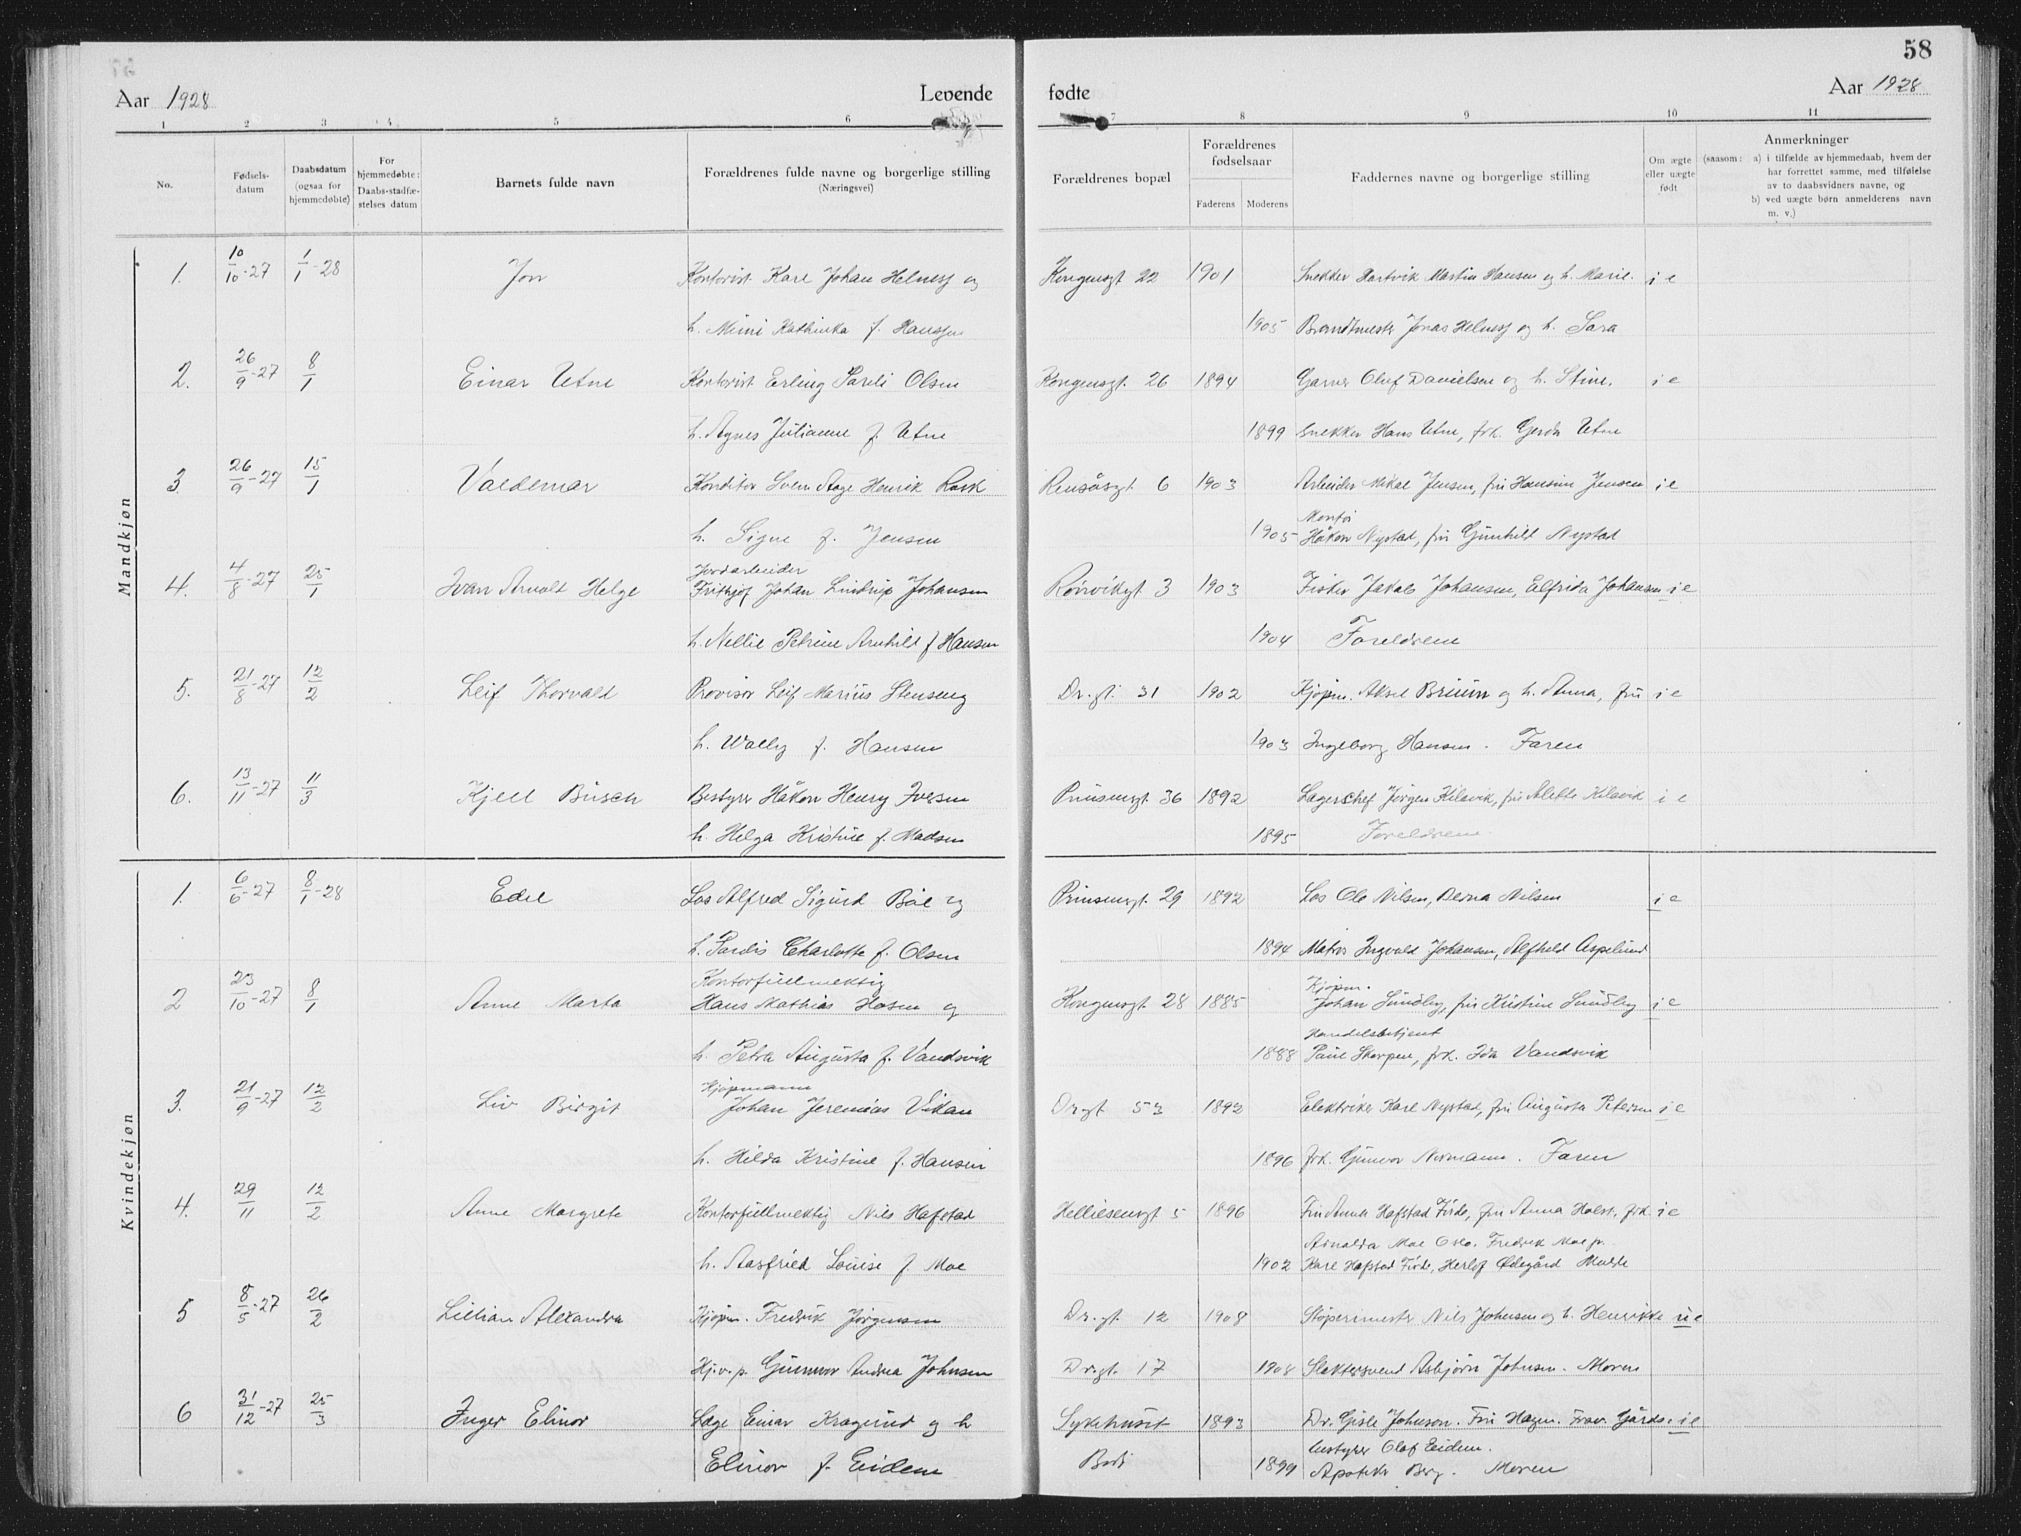 58
Aar 1928 Levende fødte Aar 1928
1 2 3 4 5 6 7 8 9 10 11
No.
Fødsels-
datum
Daabsdatum
(ogsaa for
hjemmedøbte)
For
hjemmedøbte:
Daabs-stadfæ-
stelses datum
Barnets fulde navn
Forældrenes fulde navne og borgerlige stilling
(Næringsvei)
Forældrenes bopæl
Forældrenes
fødselsaar
Faderens Moderens
Faddernes navne og borgerlige stilling
Om ægte
eller uægte
født
Anmerkninger
(saasom: a) i tilfælde av hjemmedaab, hvem der
har forrettet samme, med tilføielse
av to daabsvidners navne, og
b) ved uægte børn anmelderens navn
m. v.)
Mandkjøn
1. 10/10-27 1/1-28 Jon Kontorist Kare Johan Helness og Kongensgt 22 1901 Snekker Hartvik Martin Hansen og h. Marie. i e
h. Mimi Kathinka f. Hanssen 1905 Brandmester Jonas Helness og h. Sara
2. 26/9-27 8/1 Einar Utne Kontorist Erling Sareli Olsen Kongensgt. 26 1894 Garver Oluf Danielsen og h. Stine. i e
h. Agnes Julianne f. Utne 1899 Snekker Hans Utne, frk. Gerda Utne
3. 26/9-27 15/1 Valdemar Konditor Sven Aage Henrik Rask Rensåsgt 6 1903 Arbeider Mikal Jensen, fru Hansine Jensen i e
Montør
h. Signe f. Jensen 1905 Håkon Nystad, fru Gunhild Nystad
Jordarbeider
4. 4/8-27 25/1 Ivan Arnold Helge Frithjof Johan Lindrup Johansen Rønvikgt 3 1903 Fisker Jakob Johansen, Elfrida Johansen i e
h. Nellie Petrine Arnhild f Hansen 1904 Foreldrene
5. 21/8-27 12/2 Leif Thorvald Provisor Leif Marius Stenseng Dr.gt. 31 1902 Kjøpm. Aksel Bruun og h. Anna, fru i e
h. Wally f. Hansen 1903 Ingeborg Hansen. Faren
6. 13/11-27 11/3 Kjell Busch Bestyrer Håkon Henry Iversen Prinsensgt 36 1892 Lagerchef Jørgen Kilavik, fru Alette Kilavik i e
h. Helga Kristine f. Madsen 1895 Foreldrene
Kvindekjøn
1. 6/6-27 8/1-28 Edel Los Alfred Sigurd Bøe og Prinsensgt. 29 1892 Los Ole Nilsen, Berna Nilsen i e
h. Sardis Charlotte f. Olsen 1894 Matros Ingvald Johansen, Alfhild Aspelund
Kontorfullmektig Kjøpm.
2 23/10-27 8/1 Anne Marta Hans Mathias Hosen og Kongensgt 28 1885 Johan Sundby, fru Kristine Sundby i e
Handelsbetjent
h. Petra Augusta f. Vandsvik 1888 Paul Skorpen, frk. Ida Vandsvik
Kjøpmann
3. 21/9-27 12/2 Liv Birgit Johan Jeremias Vikan Drgt 53 1892 Elektriker Karl Nystad, fru Augusta Petersen i e
h. Hilda Kristine f. Hansen 1896 frk. Gunvor Normann. Faren
4. 29/11 12/2 Anne Margrete Kontorfullmektig Nils Hafstad Helliesensgt 5 1896 Fru Anna Hafstad Førde, fru Anna Holst, frk. i e
Arnalda Moe Oslo. Fredrik Moe jr.
h. Aasfried Louise f Moe 1902 Karl Hafstad Førde, Herlof Ødegård Molde
5 8/5-27 26/2 Lillian Alexandra Kjøpm. Fredrik Jørgensen Dr.gt. 12 1908 Støperimester Nils Johnsen og h. Henrikke u e
Hj.v.p. Gunnvor Andrea Johnsen Dr.gt. 17 1908 Slaktersvend Asbjørn Johnsen. Moren
6 31/12-27 25/3 Inger Elinor Læge Einar Kragerud og h Sykehuset 1893 Dr. Gisle Johnson. Fru Hagen. Frøv. Gårds- i e
bestyrer Olaf Eidem.
Elinor f. Eidem Bodø 1899 Apoteker Berg. Moren